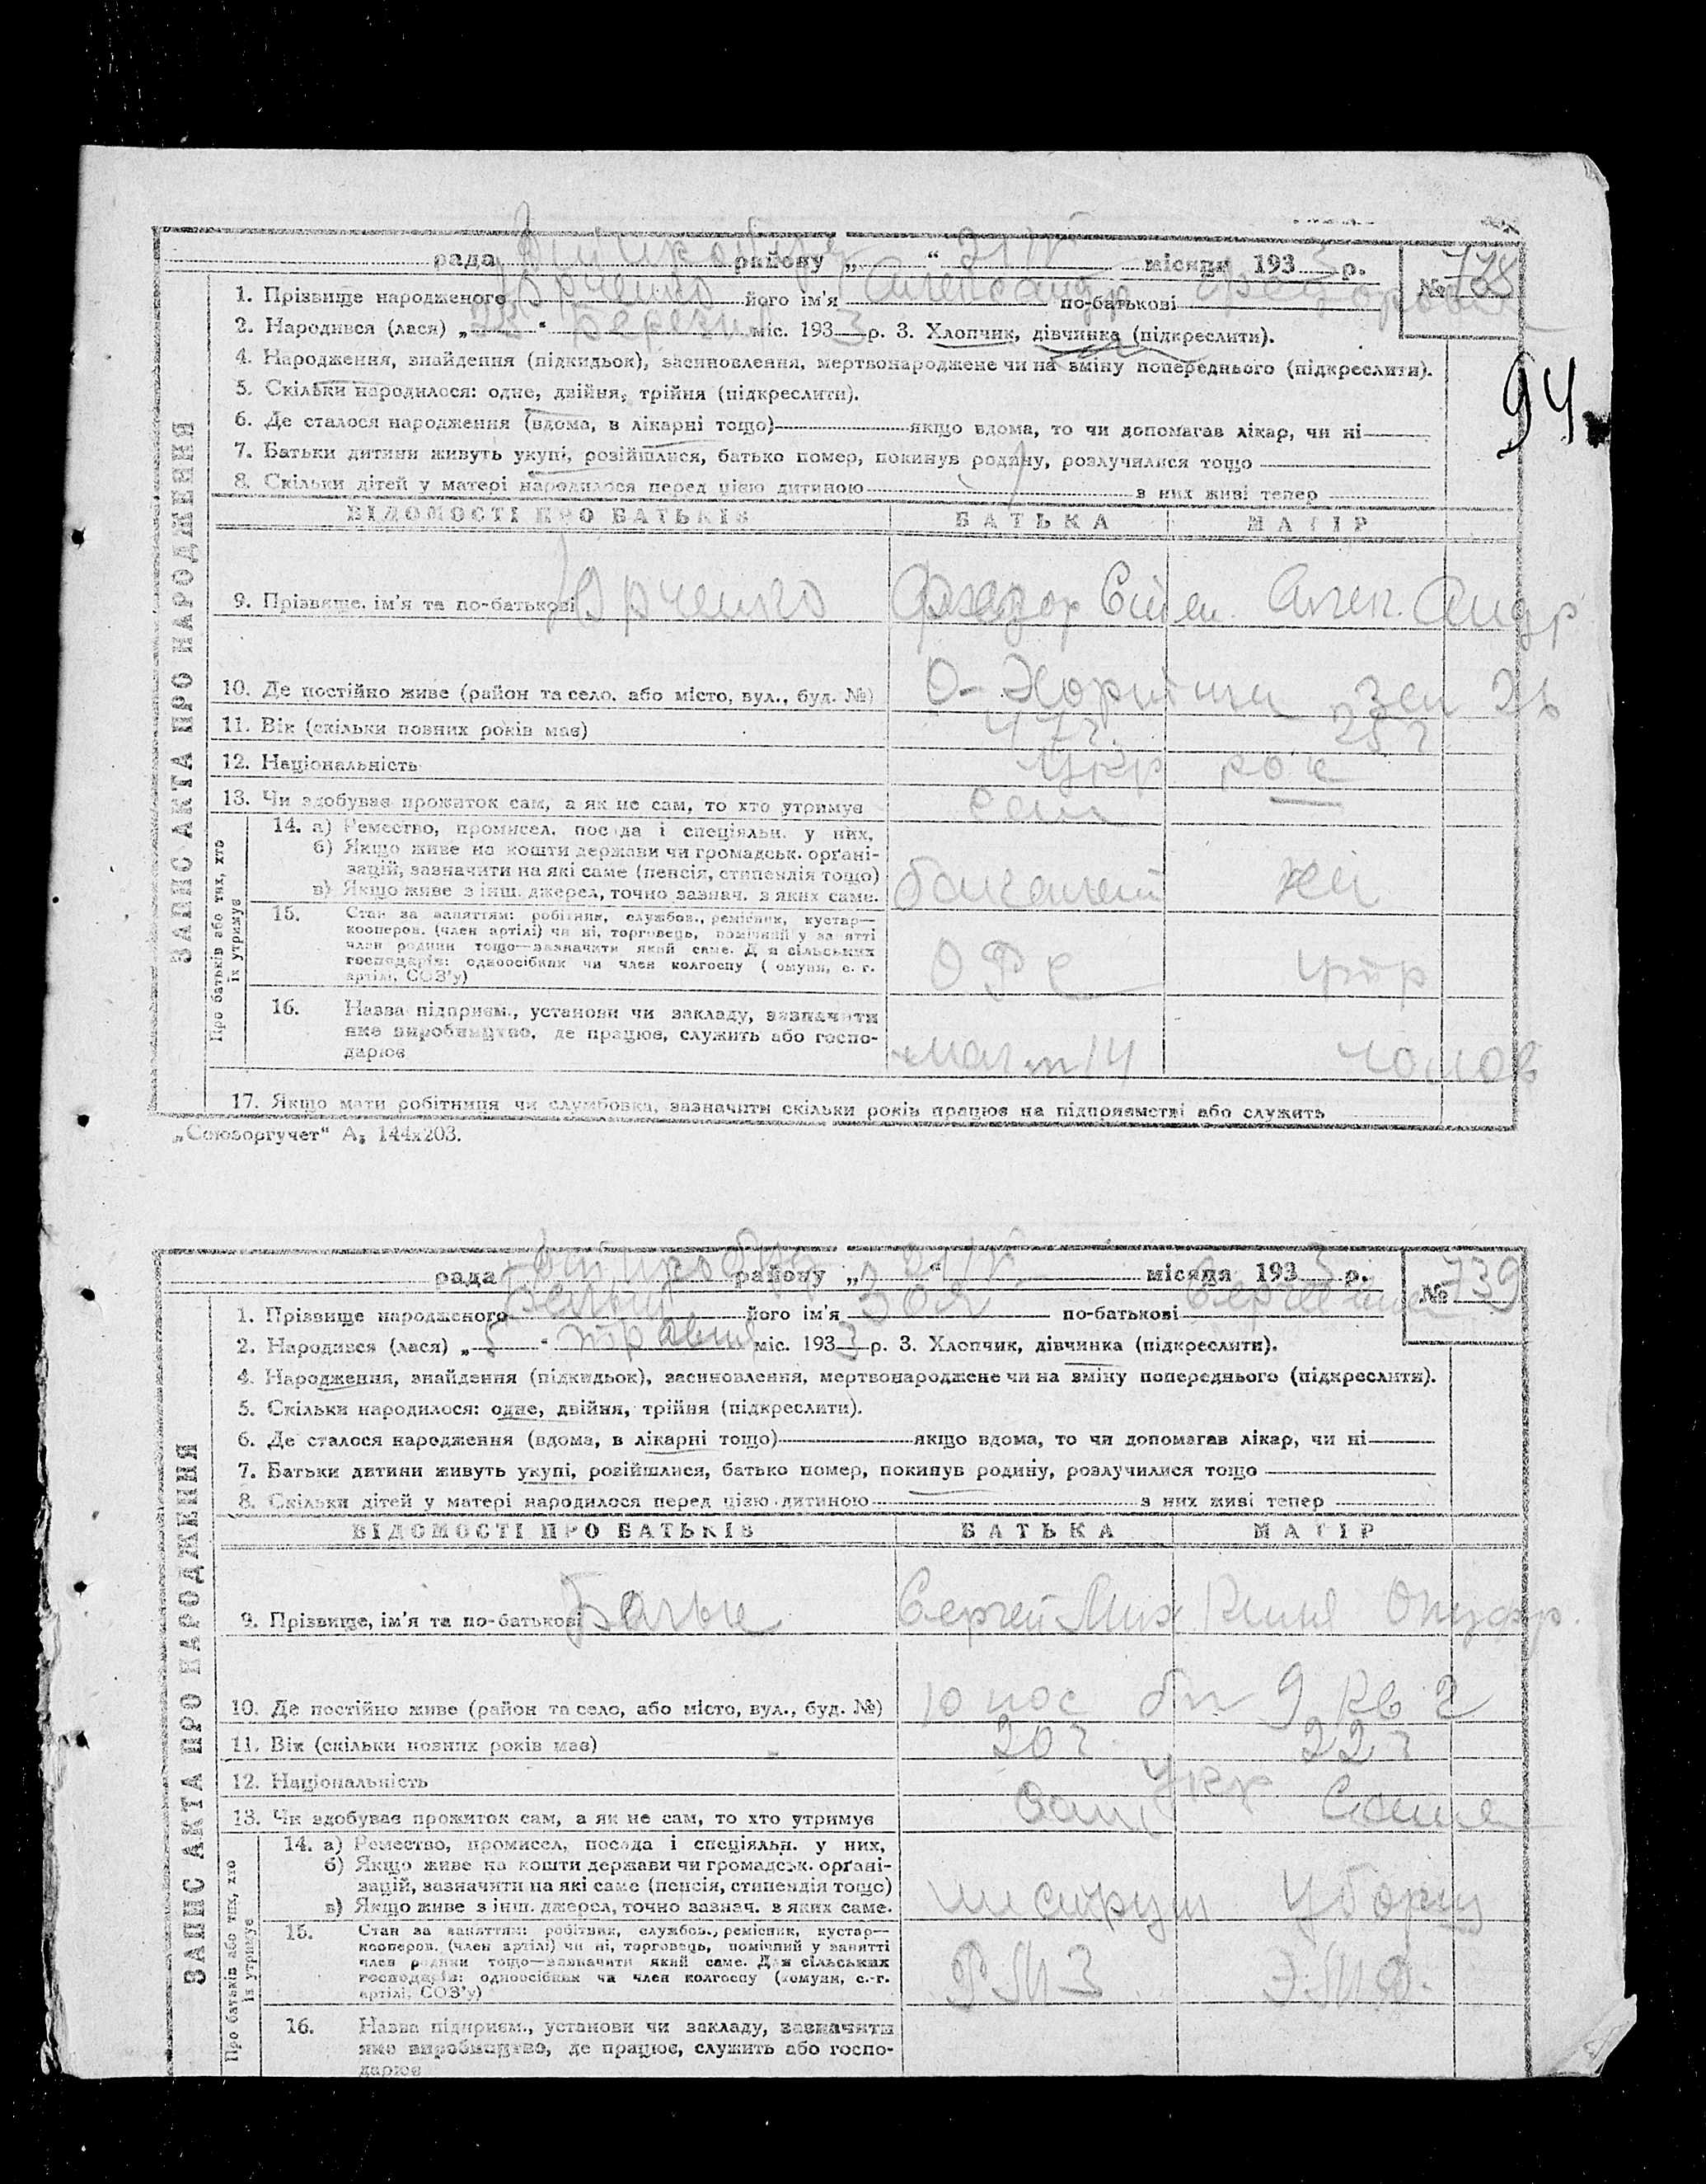 рада району „ “ 21/V місяця 1933 р.
№ 738
1. Прізвище народженого Юрченко його ім'я Александр по-батькові
2. Народився (лася) „ “ березня міс. 1933 р. 3. Хлопчик, дівчинка (підкреслити).
4. Народження, знайдення (підкидьок), засиновлення, мертвонароджене чи на зміну попереднього (підкреслити).
94
5. Скільки народилося: одне, двійня, трійня (підкреслити).
6. Де сталося народження (вдома, в лікарні тощо) якщо вдома, то чи допомагав лікар, чи ні
7. Батьки дитини живуть укупі, розійшлися, батько помер, покинув родину, розлучилися тощо
8. Скільки дітей у матері народилося перед цією дитиною з них живі тепер
ЗАПИС АКТА ПРО НАРОДЖЕННЯ
ВІДОМОСТІ ПРО БАТЬКІВ БАТЬКА МАТІР
9. Прізвище, ім'я та по-батькові Юрченко Федор Алек. Андр
10. Де постійно живе (район та село, або місто, вул., буд. №) О-Хортица
11. Вік (скільки повних років має) 47 г. 28 г
12. Національність Укр рос
13. Чи здобуває прожиток сам, а як не сам, то хто утримує сам
Про батьків або тих, хто їх утримує
14. а) Ремество, промисел, посада і спеціяльн. у них,
б) Якщо живе на кошти держави чи громадськ. орґані-
зацій, зазначити на які саме (пенсія, стипендія тощо)
в) Якщо живе з інш. джерел, точно зазнач. з яких саме.
15. Стан за заняттям: робітник, службов., ремісник, кустар—
кооперов. (член артілі) чи ні, торговець, помічний у занятті
член родини тощо—зазначити який саме. Для сільських
господарів: одноосібник чи член колгоспу (комуни, с.-г.
артілі, СОЗ'у)
ОРС
16. Назва підприєм., установи чи закладу, зазначити
яке виробництво, де працює, служить або госпо-
дарює
маг 14
17. Якщо мати робітниця чи службовка, зазначити скільки років працює на підприємстві або служить
„Союзоргучет“ А5 144х203.
рада району „ “ 21/V місяця 1933 р.
№ 739
1. Прізвище народженого його ім'я Зоя по-батькові Сергеевна
2. Народився (лася) „5“ травня міс. 1933 р. 3. Хлопчик, дівчинка (підкреслити).
4. Народження, знайдення (підкидьок), засиновлення, мертвонароджене чи на зміну попереднього (підкреслити).
5. Скільки народилося: одне, двійня, трійня (підкреслити).
6. Де сталося народження (вдома, в лікарні тощо) якщо вдома, то чи допомагав лікар, чи ні
7. Батьки дитини живуть укупі, розійшлися, батько помер, покинув родину, розлучилися тощо
8. Скільки дітей у матері народилося перед цією дитиною з них живі тепер
ЗАПИС АКТА ПРО НАРОДЖЕННЯ
ВІДОМОСТІ ПРО БАТЬКІВ БАТЬКА МАТІР
9. Прізвище, ім'я та по-батькові Сергей Мих Онуфр.
10. Де постійно живе (район та село, або місто, вул., буд. №) 10 пос 9 кв 2
11. Вік (скільки повних років має) 20 г 22 г
12. Національність Укр
13. Чи здобуває прожиток сам, а як не сам, то хто утримує Сам Сама
Про батьків або тих, хто їх утримує
14. а) Ремество, промисел, посада і спеціяльн. у них,
б) Якщо живе на кошти держави чи громадськ. орґані-
зацій, зазначити на які саме (пенсія, стипендія тощо)
в) Якщо живе з інш. джерел, точно зазнач. з яких саме.
уборщ
15. Стан за заняттям: робітник, службов., ремісник, кустар—
кооперов. (член артілі) чи ні, торговець, помічний у занятті
член родини тощо—зазначити який саме. Для сільських
господарів: одноосібник чи член колгоспу (комуни, с.-г.
артілі, СОЗ'у)
РМЗ
16. Назва підприєм., установи чи закладу, зазначити
яке виробництво, де працює, служить або госпо-
дарює